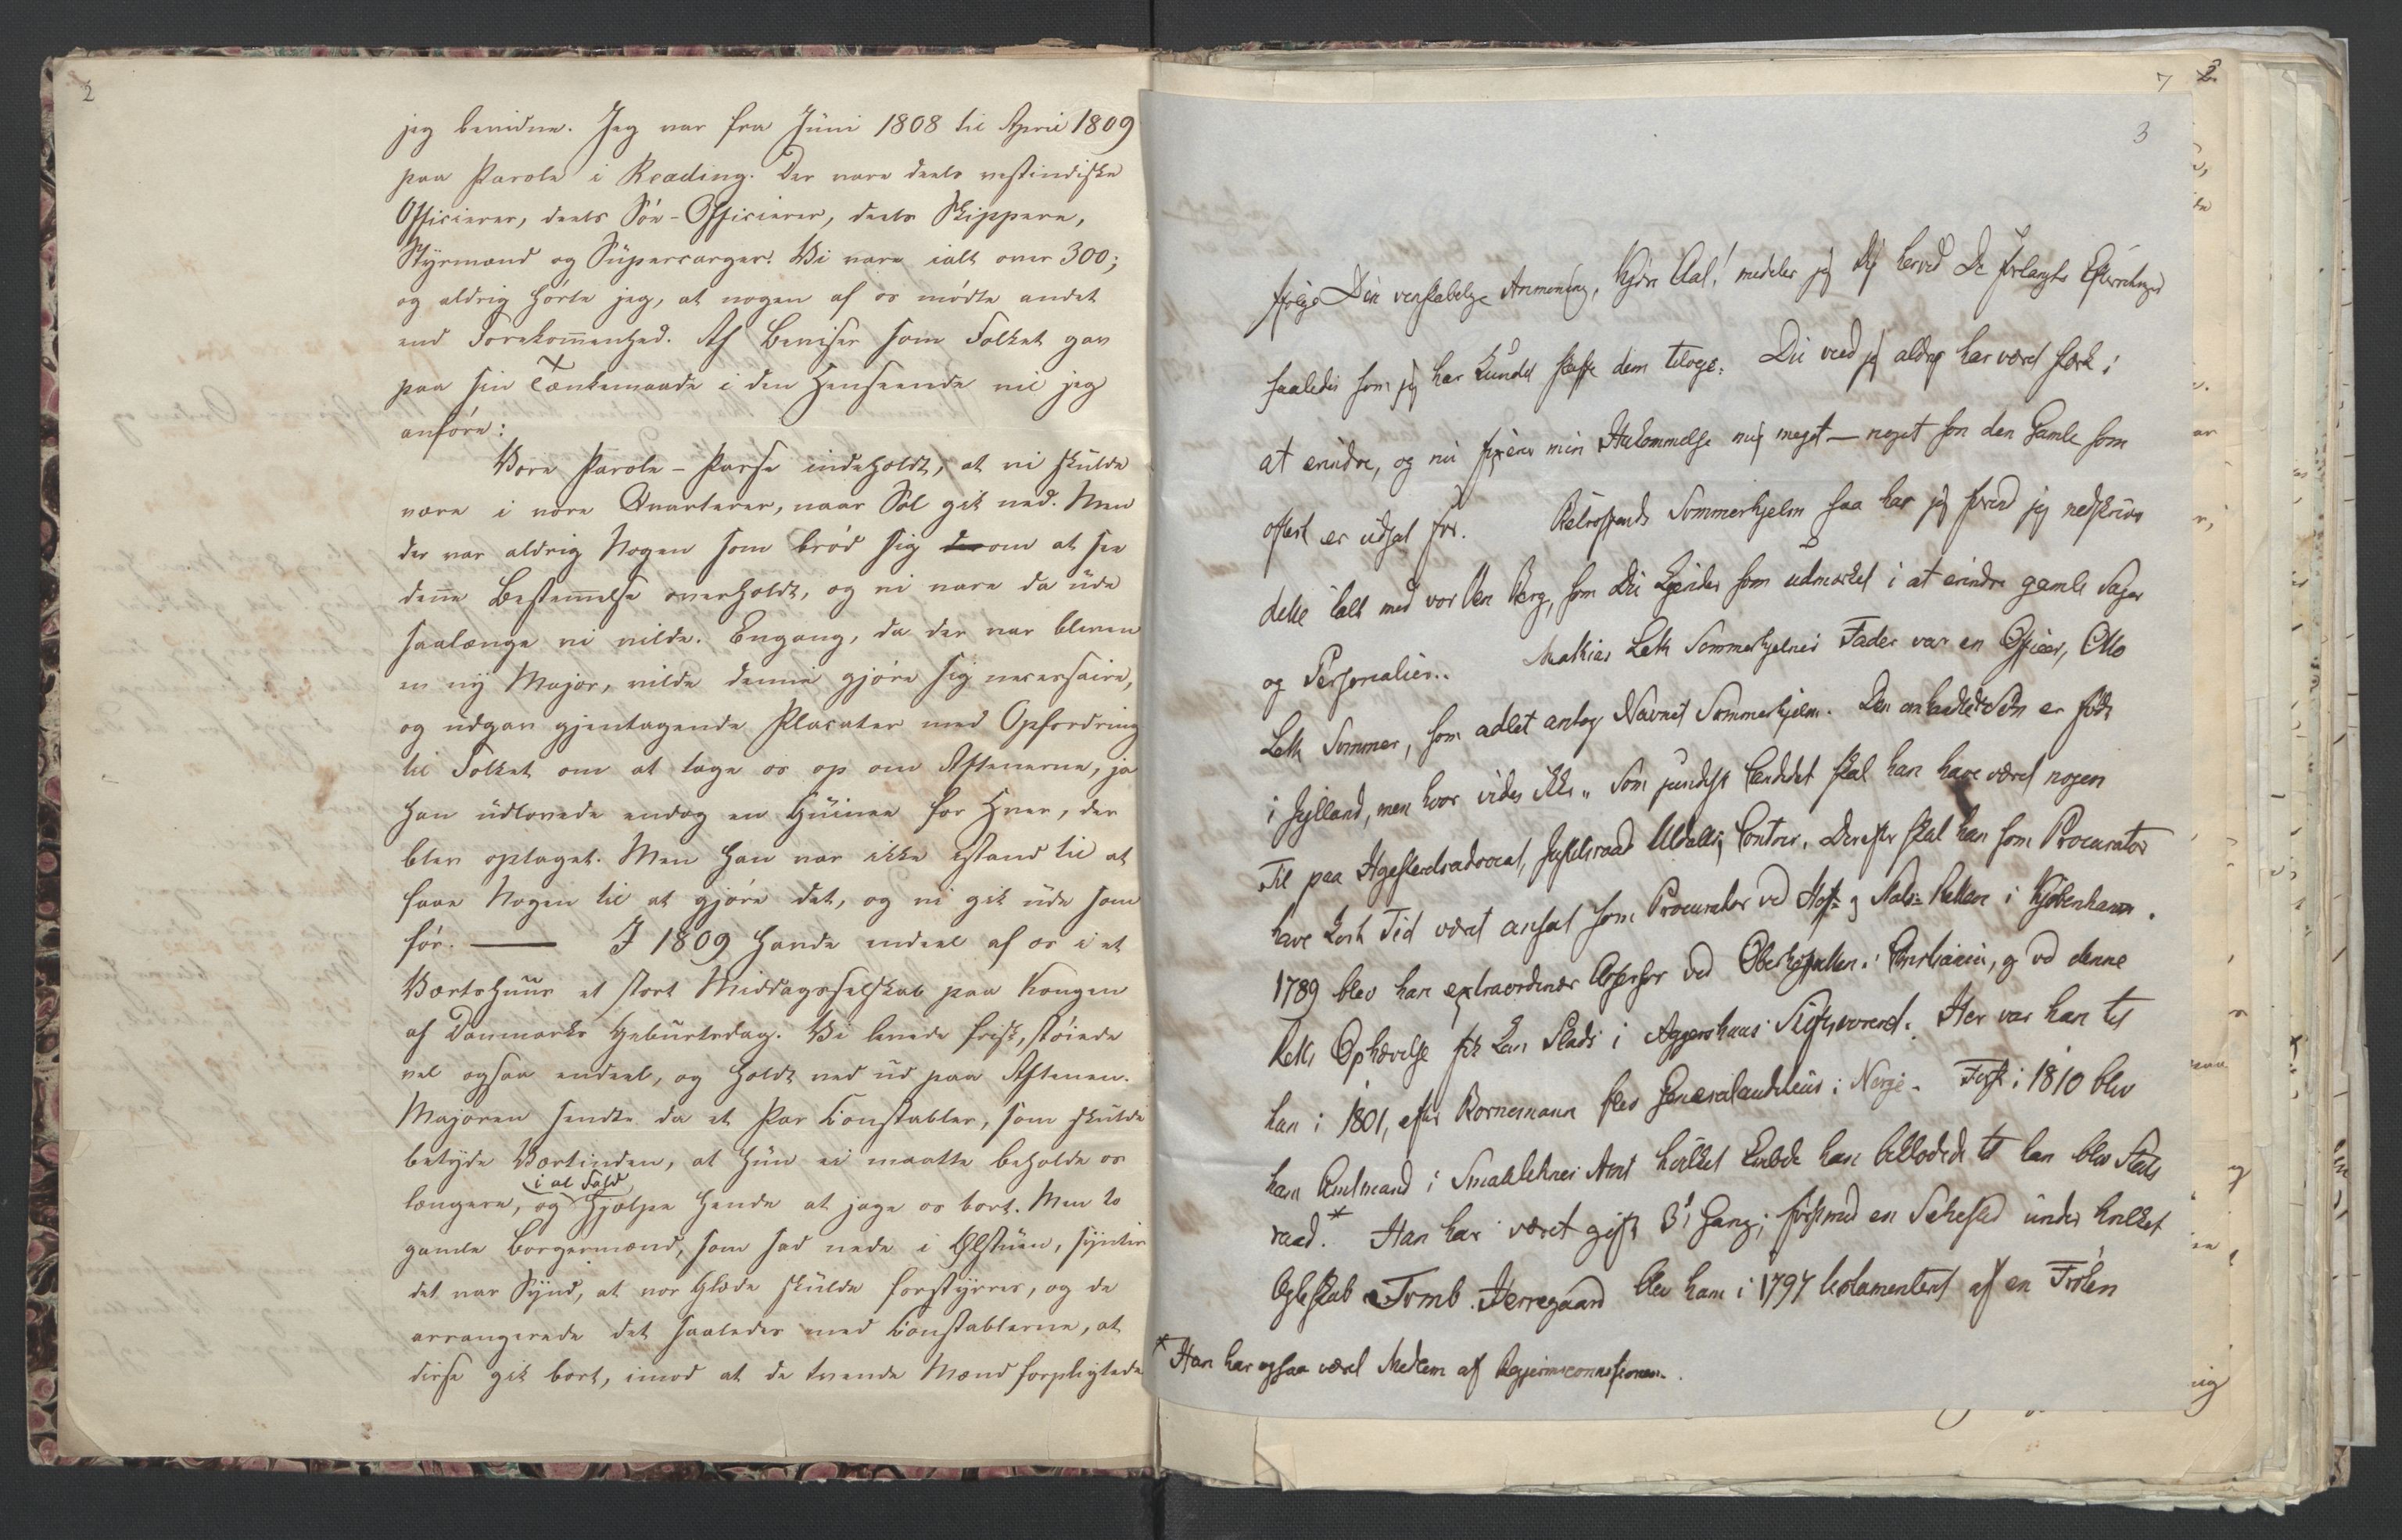 2
jeg bevidne. Jeg var fra Juni 1808 til April 1809
paa Parole i Reading. Der vare deels vestindiske
Officierer, deels Söe-Officierer, deels Skippere,
Styrmænd og Supercarger. Vi vare ialt over 300;
og aldrig hörte jeg, at nogen af os mödte andet
end Forekom̅enhed. Af Beviser som Folket gav
paa sin Tænkemaade i den Henseende vil jeg
anföre:
Vore Parole-Passe indeholdt, at vi skulde
være i vore Qvarterer, naar Sol gik ned. Men
der var aldrig Nogen som bröd sig om at see
den̅e Bestem̅else overholdt, og vi vare da ude
saalænge vi vilde. Engang, da der var bleven
en ny Major, vilde denne gjöre sig necessaire,
og udgav gjentagende Placater med Opfordring
til Folket om at tage os op om Aftenerne, ja
han udlovede endog en Guinee for Hver, der
blev optaget. Men han var ikke istand til at
faae Nogen til at gjöre det, og vi gik ude som
för. — I 1809 havde endeel af os i et
Værtshuus et stort Middagsselskab paa Kongen
af Danmarks Geburtsdag. Vi levede frisk, støiede
vel ogsaa endeel, og holdt ved ud paa Aftenen.
Majoren sendte da et Par Constabler, som skulde
betyde Værtinden, at hun ei maatte beholde os
længere, og i al Fald hjælpe hende at jage os bort. Men to
gamle Borgermænd, som sad nede i Ølstuen, syntes
det var Synd, at vor Glæde skulde forstyrres, og de
arrangerede det saaledes med Constablerne, at
disse gik bort, imod at de tvende Mænd forpligtede
7 2
3
følge Din venskabelige Anmoning, kjere Aal! medeler jeg Dig herved De forlangte Efterretninger
saaledes som jeg har kundet skaffe dem tilveie. Du veed jeg aldrig har været stærk i
at erindre, og nu fixerer min Hukommelse mig meget — noget som den Gamle som
oftest er udsat for. Betræffende Sommerhjelm saa har jeg forend jeg nedskriver
dette talt med vor Ven Berg, som Du kjender som udmærket i at erindre gamle Sager
og Personalier. Mathias Leth Sommerhjelms Fader var en Officer, Otto
Leth Sommer, som adlet antog Navnet Sommerhjelm. Den omhandlede Søn er født
i Jylland, men hvor vides ikke. Som juridisk Candidat skal han have været nogen
Tid paa Høiesteretsadvocat, Justitsraad Uldalls Contoir. Derefter skal han som Procurator
have kort Tid været ansat som Procurator ved Hof- og Stats-Retten i Kjøbenhavn.
1789 blev han extraordinær Assessor ved Oberhofretten i Christiania, og ved denne
Retts Ophævelse fik han Plads i Aggershuus Stiftsoverret. Her var han til
han i 1801, efter Bornemann blev Generalauditeur i Norge. Først i 1810 blev
han Amtmand i Smaalehnes Amt hvilket Embede han beklædede til han blev Stats
raad.* Han har været gift 3 Gange; først med en Sehested under hvilket
Ægteskab Tomb Herregaard blev ham i 1797 testamenteret af en Frøken
* Han har ogsaa været Medlem af Regjeringscommissionen.